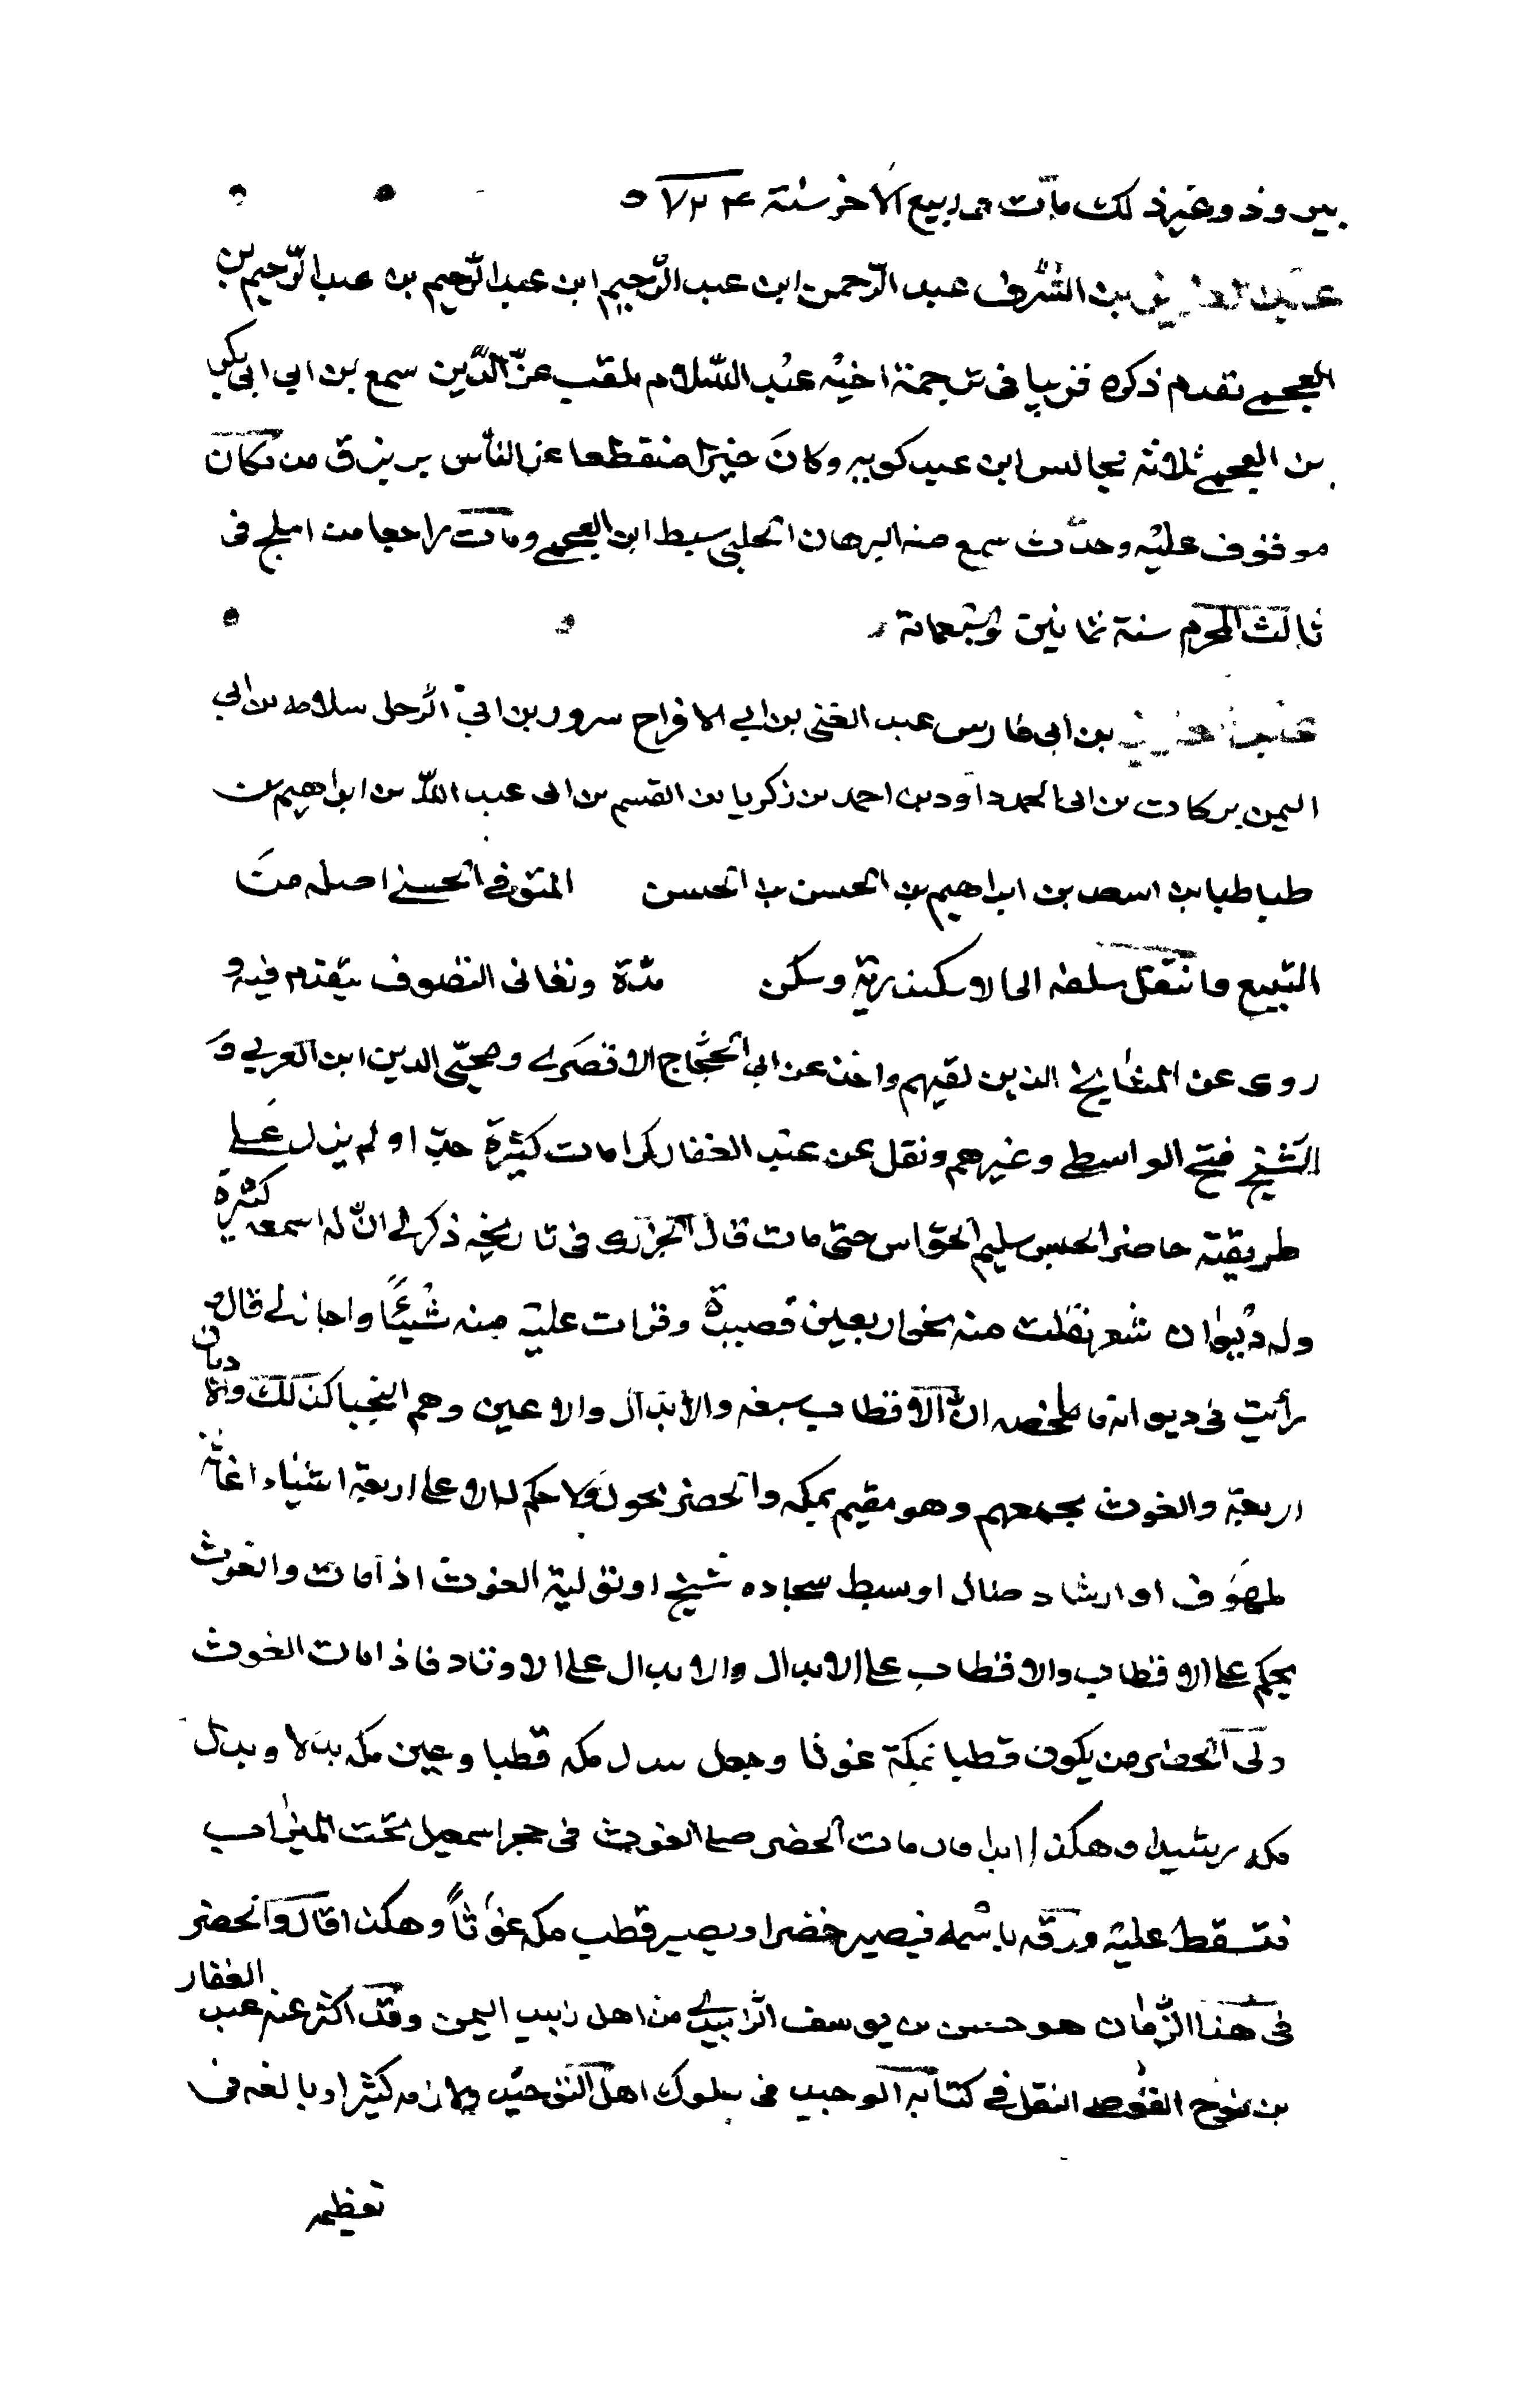 بيروذ وغيرذلك مات في ربيع الاخر سنة ٧٢٤ ه
عبد العزيز بن الشرف عبد الرّحمن ابن عبد الرّحيم ابن عبد الرّحيم بن عبد الرّحيم بن
العجمي تقدم ذكره قريبا في ترجمة اخيه عبد السّلام يلقب عزّ الدّين سمع بن ابي ابي بكر
بن العجمي ثلاثة مجالس ابن عبد كويه وكان خيرا منقطعا عن الناس يرتزق من مكان
موقوف عليه وحدّث سمع منه البرهان الحلبي سبط ابن العجمي ومات راجعا من املج في
ثالث المحرم سنة ثمانين وسبعمائة
عبد العزيز بن ابي فارس عبد الغني بن ابي الافراح سرور بن ابي الرّحل سلامه بن ابي
اليمن بركات بن ابي الحمد داود بن احمد بن زكريا بن القسم بن ابي عبد اللّه بن ابراهيم بن
طباطبا بن اسعد بن ابراهيم بن الحسن بن الحسن المتوفي الحسني اصله من
الينبع فانتقل سلفه الى الاسكندرية وسكن مدّة وتغانى التصوف يتقدم فيه و
روى عن المشايخ الذين لقيهم واخذ عن ابي الحجّاج الاقصري ومحيّي الدين ابن العربي و
الشيخ فتح الواسطي وغيرهم ونقل عن عبد الغفار كرامات كثيرة جدّا ولم يزل على
طريقته حاضر الحس سليم الحوّاس حتى مات قال الجزري في تاريخه ذكر لي انّ له اسمعة كثيرة
وله ديوان شعر نقلت منه نحو اربعين قصيدة وقرات عليه منه شيئًا واجاز لي قال و
رأيت في ديوانه ما ملخصه انّ الاقطاب سبعه والابدال والاعين وهم النجبا كذلك والاوتاد
اربعة والغوث يجمعهم وهو مقيم بمكه والخضر يجول ولا حكم له الا على اربعة اشياء اغاثة
ملهوف او ارشاد ضال او بسط سجاده شيخ او تولية الغوث اذا مات والغوث
يحكم على الاقطاب والاقطاب على الابدال والابدال على الاوتاد فاذا مات الغوث
ولى الخضر من يكون قطبا بمكة غوثا وجعل بدل مكه قطبا وعين مكه بدلا وبدل
مكه رشيدا وهكذا ابدا فان مات الخضر صلى الغوث في حجر اسمعيل تحت الميزاب
فتسقط عليه ورقه باسمه فيصير خضرا ويصير قطب مكه غوثاً وهكذا قال والخضر
في هذا الزّمان هو حسن بن يوسف الزّبيدي من اهل زبيد اليمن وقد اكثر عنه عبد الغفار
بن نوح القوصي النقل في كتابه الوحيد في سلوك اهل التوحيد ولازمه كثيرا وبالغ في
تعظيمه